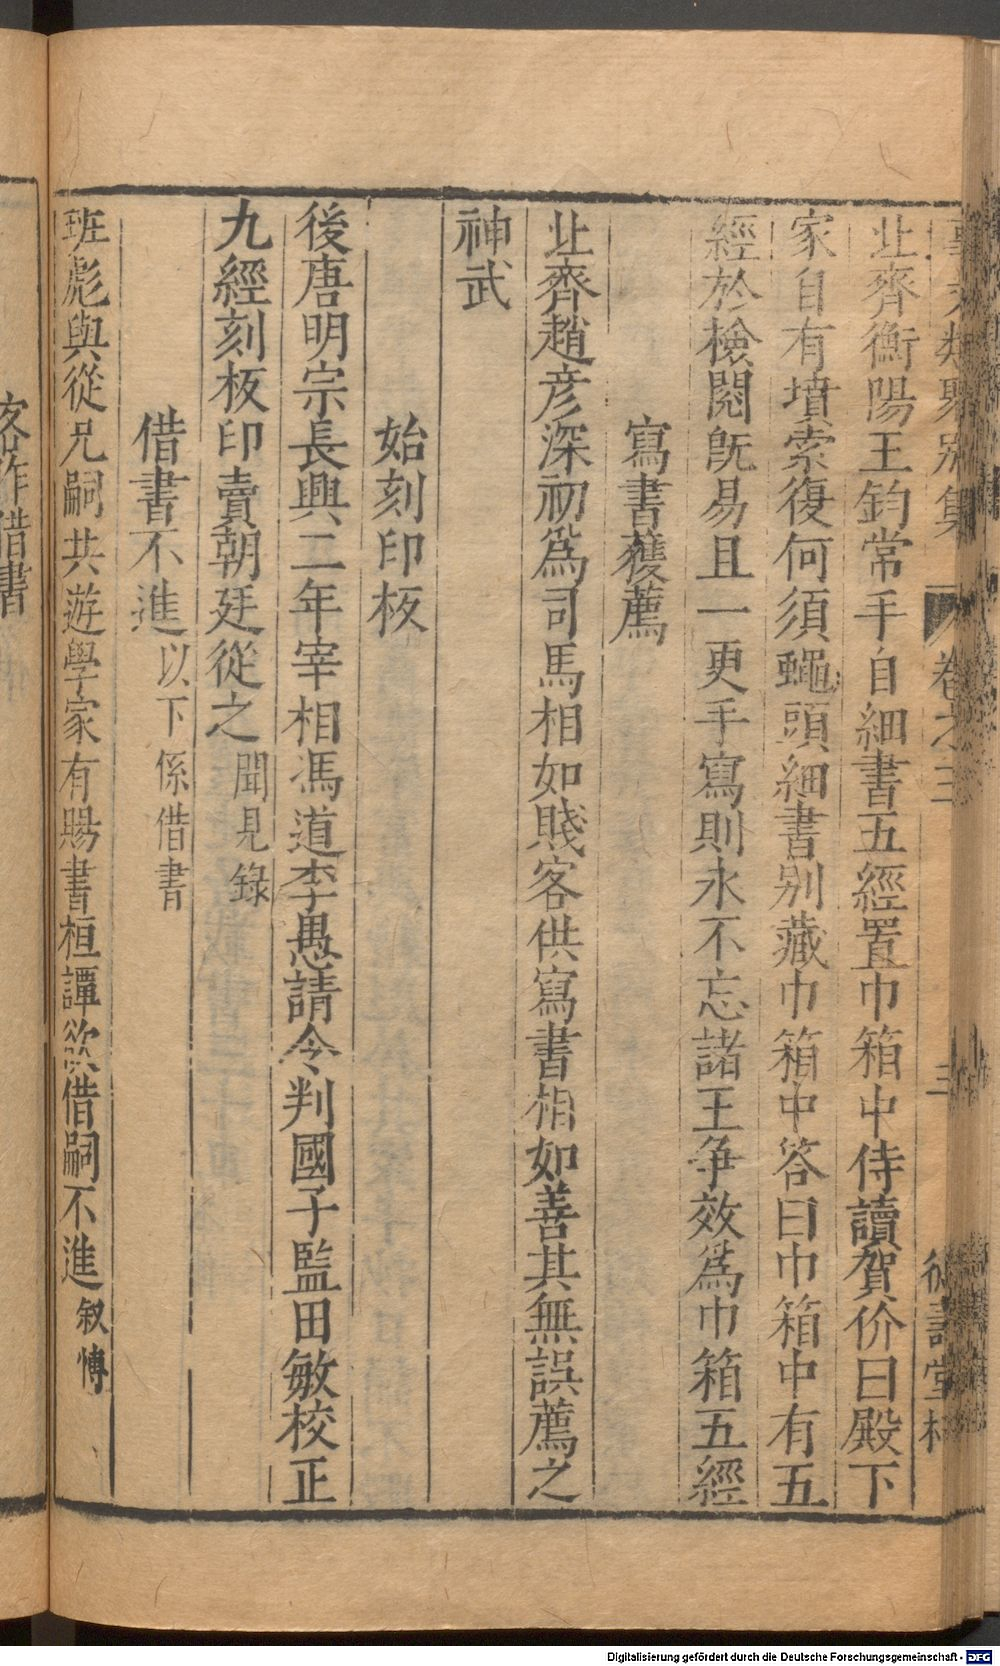 事文類聚別集 卷之三 三
北齊衡陽王鈞常手自細書五經置巾箱中侍讀賀价曰殿下
家自有墳索復何須蠅頭細書别藏巾箱中答曰巾箱中有五
經於檢閱旣易且一更手寫則永不忘諸王争效爲巾箱五經
寫書獲薦
北齊趙彦深初爲司馬相如賤客供寫書相如善其無誤薦之
神武
始刻印板
後唐明宗長興二年宰相馮道李愚請令判國子監田敏校正
九經刻板印賣朝廷從之 聞見錄
借書不進 以下係借書
班彪與從兄嗣共遊學家有賜書桓譚欲借嗣不進 叙傳
借書
Digitalisierung gefördert durch die Deutsche Forschungsgemeinschaft - DFG